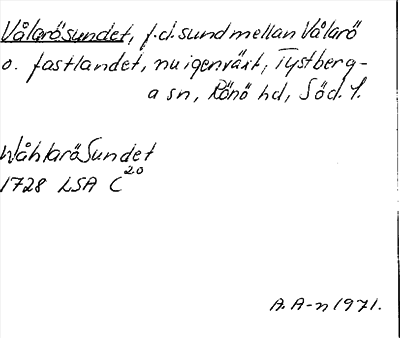 Vålarösundet, f.d. sund mellan Vålarö
o. fastlandet, nu igenväxt, Tystberg-
a sn, Rönö hd, Söd. l.
WåhlaröSundet
1728 LSA C20
A. A-n 1971.